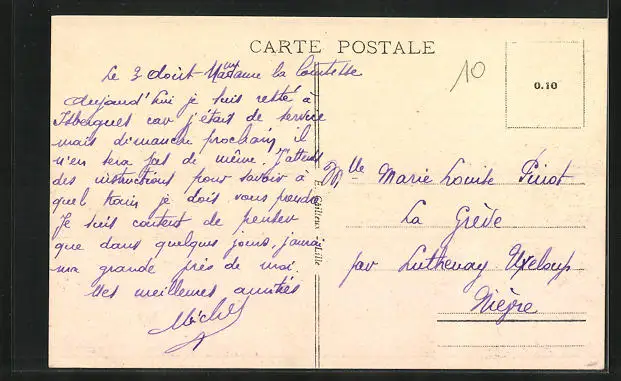 CARTE POSTALE
10
0.10
Le 3 Août Madame la Comtesse
Aujourd'hui je suis resté à
Isbergues car j'étais de service
mais dimanche prochain il
n'en sera pas de même. J'attends
des instructions pour savoir à
quel train je dois vous prendre
Je suis content de penser
que dans quelques jours, j'aurai
ma grande près de moi.
Mes meilleures amitiés
Michel
E. Cailleux - Lille
Mlle Marie Louise Pinot
La Grève
par Luthenay Uxeloup
Nièvre